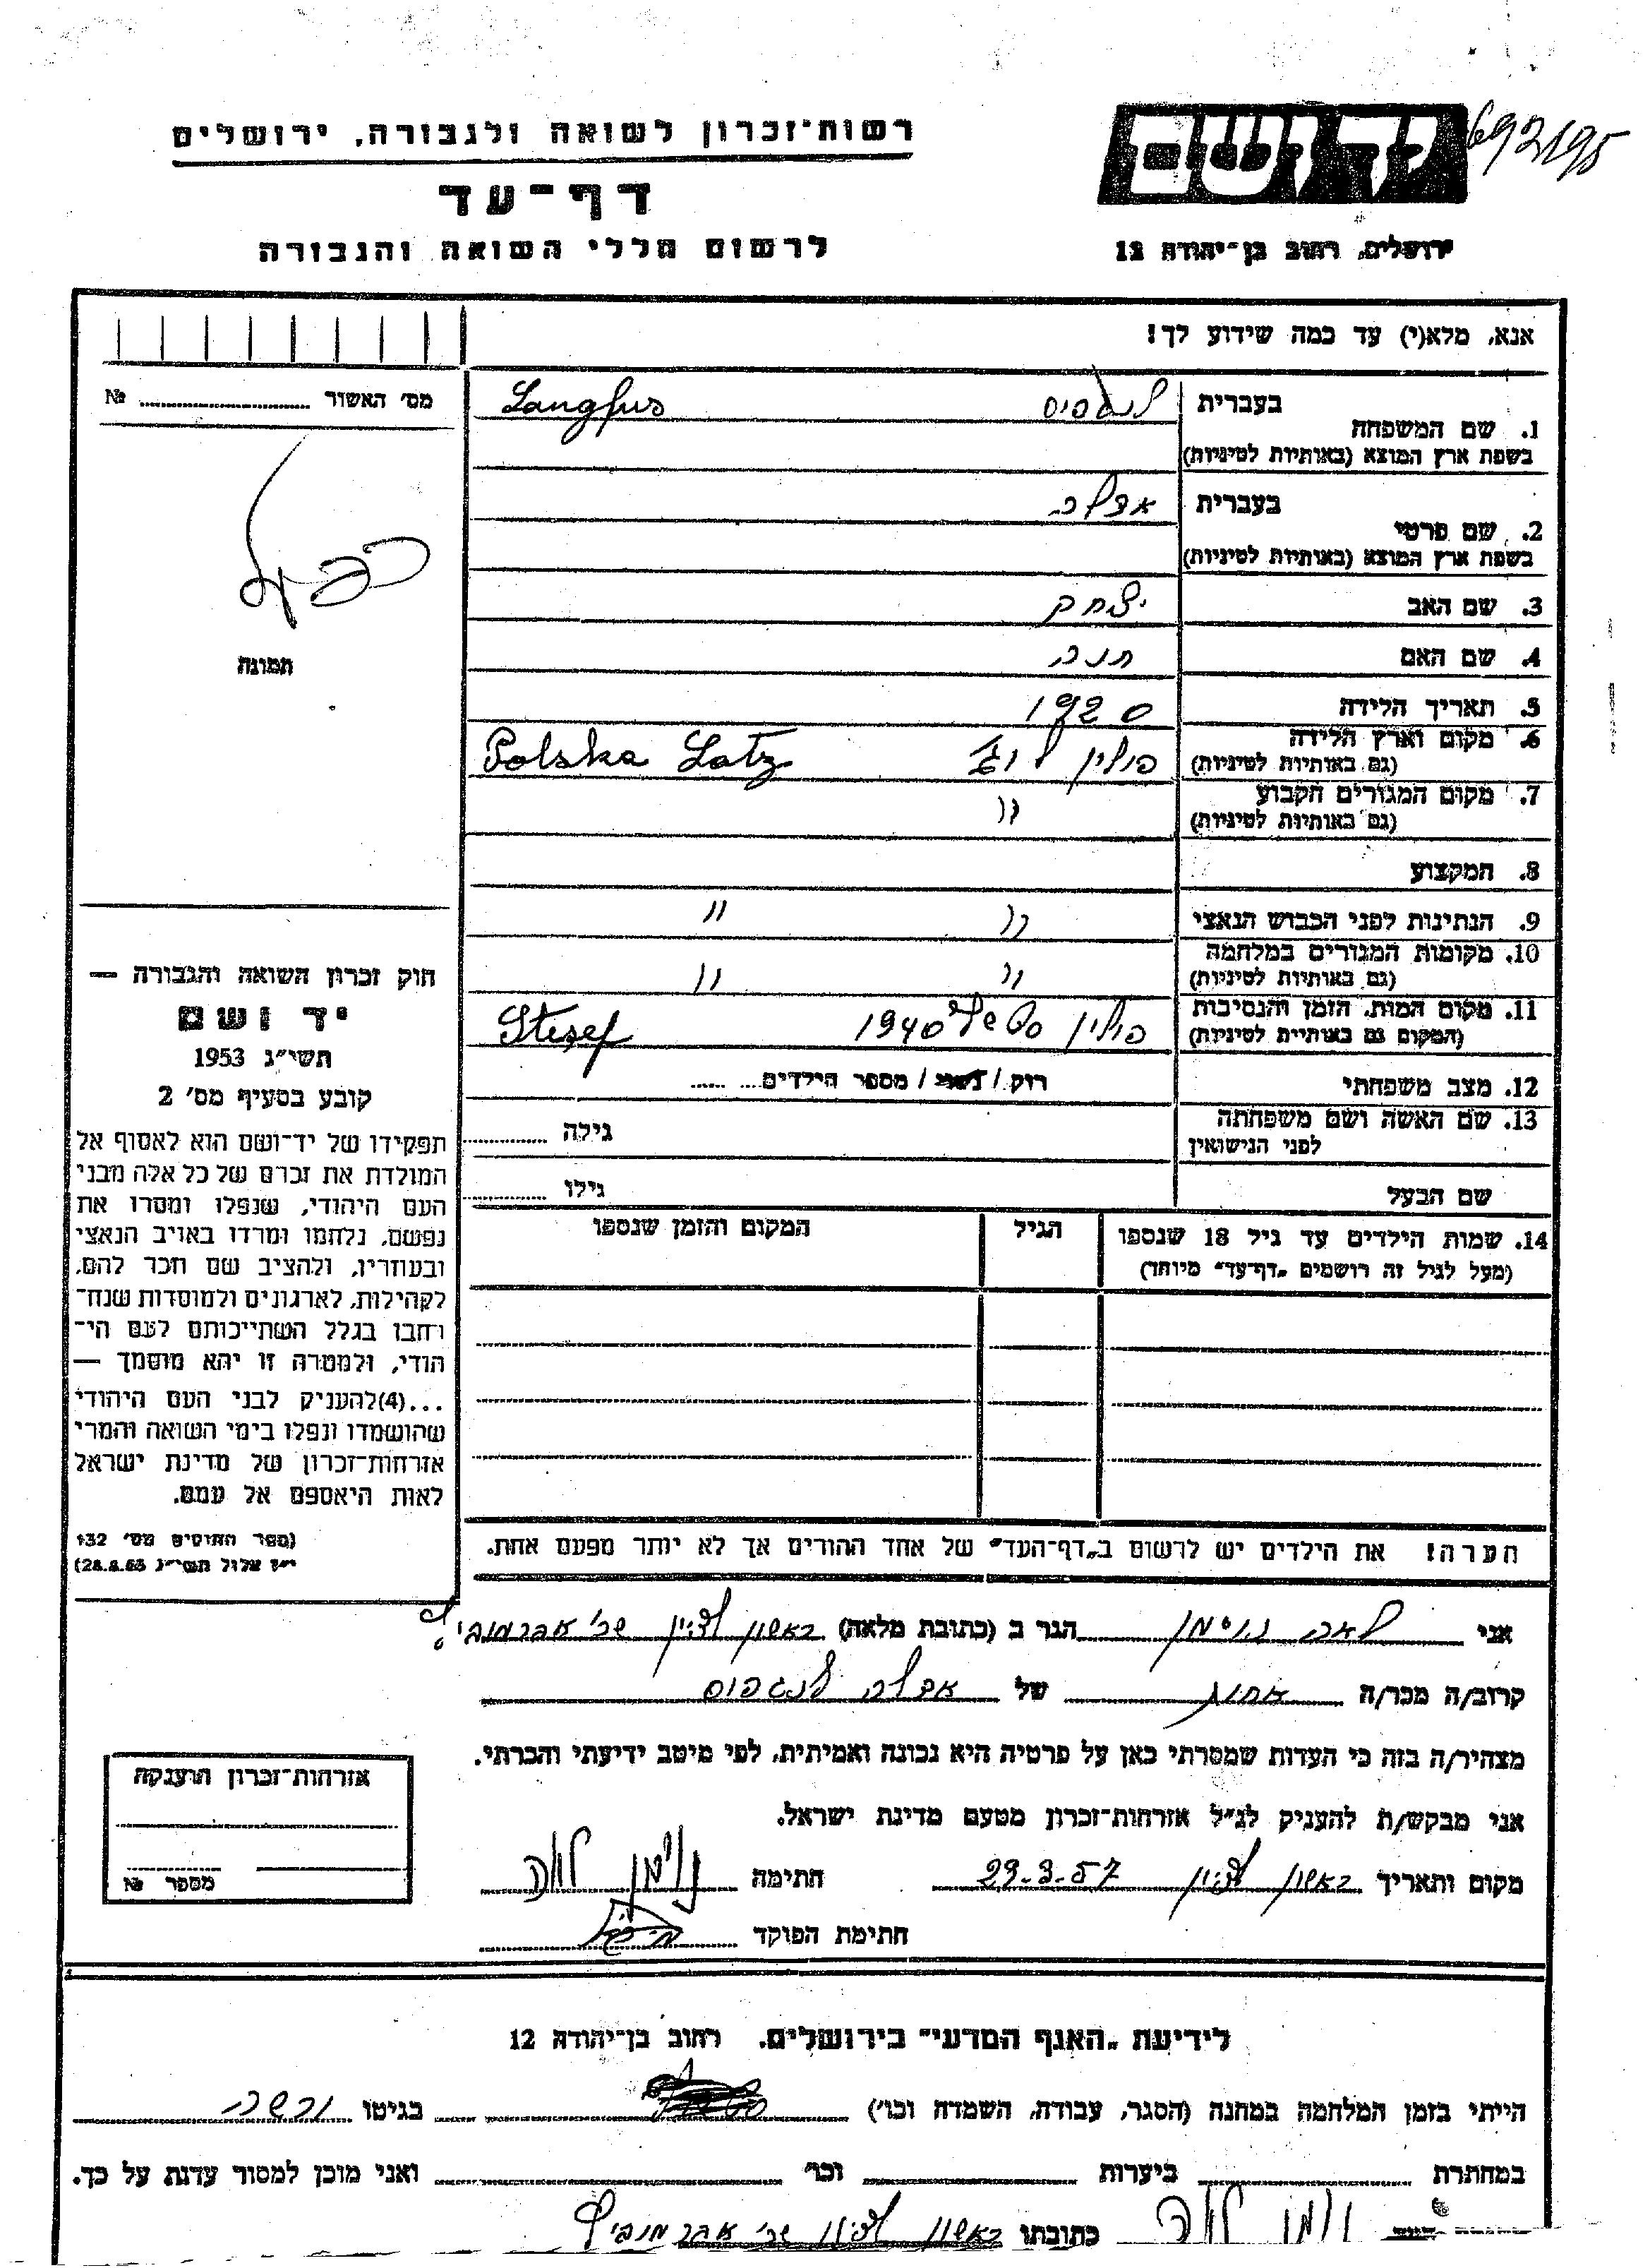 רשות־זכרון לשואה ולגבורה, ירושלים
דף־עד
לרשום חללי השואה והגבורה
יד ושם
692195
ירושלים, רחוב בן־יהודה 12
אנא, מלא(י) עד כמה שידוע לך!
מס׳ האשור ........ №
תמונה
1. שם המשפחה בעברית לנגפוס Langfus
בשפת ארץ המוצא (באותיות לטיניות)
2. שם פרטי בעברית אדלה
בשפת ארץ המוצא (באותיות לטיניות)
3. שם האב יצחק
4. שם האם חנה
5. תאריך הלידה 1920
6. מקום וארץ הלידה פולין לודג׳ Polska Lotz
(גם באותיות לטיניות)
7. מקום המגורים הקבוע "
(גם באותיות לטיניות)
8. המקצוע
9. הנתינות לפני הכבוש הנאצי " "
10. מקומות המגורים במלחמה " "
(גם באותיות לטיניות)
11. מקום המות, הזמן והנסיבות פולין 1940 Stesef
(המקום גם באותיות לטיניות)
12. מצב משפחתי רוק / נשוי / מספר הילדים ........
13. שם האשה ושם משפחתה
לפני הנישואין גילה ........
שם הבעל גילו ........
14. שמות הילדים עד גיל 18 שנספו הגיל המקום והזמן שנספו
(מעל לגיל זה רושמים „דף־עד" מיוחד)
חוק זכרון השואה והגבורה —
יד ושם
תשי״ג 1953
קובע בסעיף מס׳ 2
תפקידו של יד־ושם הוא לאסוף אל
המולדת את זכרם של כל אלה מבני
העם היהודי, שנפלו ומסרו את
נפשם, נלחמו ומרדו באויב הנאצי
ובעוזריו, ולהציב שם וזכר להם,
לקהילות, לארגונים ולמוסדות שנח־
רבו בגלל השתייכותם לעם הי־
הודי, ולמטרה זו יהא מוסמך —
...(4) להעניק לבני העם היהודי
שהושמדו ונפלו בימי השואה והמרי
אזרחות־זכרון של מדינת ישראל
לאות היאספם אל עמם.
(ספר החוקים מס׳ 132
י״ז אלול תשי״ג 28.8.53)
הערה! את הילדים יש לרשום ב„דף־העד" של אחד ההורים אך לא יותר מפעם אחת.
אני לאה נוימן הגר ב (כתובת מלאה) ראשון לציון שכ׳ אברמוביץ
קרוב/ה מכר/ה אחות של אדלה לנגפוס
מצהיר/ה בזה כי העדות שמסרתי כאן על פרטיה היא נכונה ואמיתית, לפי מיטב ידיעתי והכרתי.
אני מבקש/ת להעניק לנ״ל אזרחות־זכרון מטעם מדינת ישראל.
מקום ותאריך ראשון לציון 29.3.57 חתימה נוימן לאה
חתימת הפוקד
אזרחות־זכרון הוענקה
מספר №
לידיעת „האגף המדעי" בירושלים, רחוב בן־יהודה 12
הייתי בזמן המלחמה במחנה (הסגר, עבודה, השמדה וכו׳) בגיטו ורשה
במחתרת ביערות וכו׳ ואני מוכן למסור עדות על כך.
נוימן לאה כתובתו ראשון לציון שכ׳ אברמוביץ